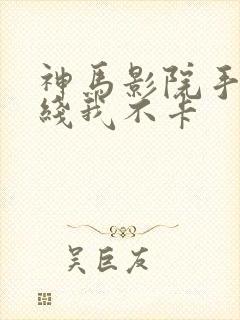 神马影院手
线我不卡
吴巨友